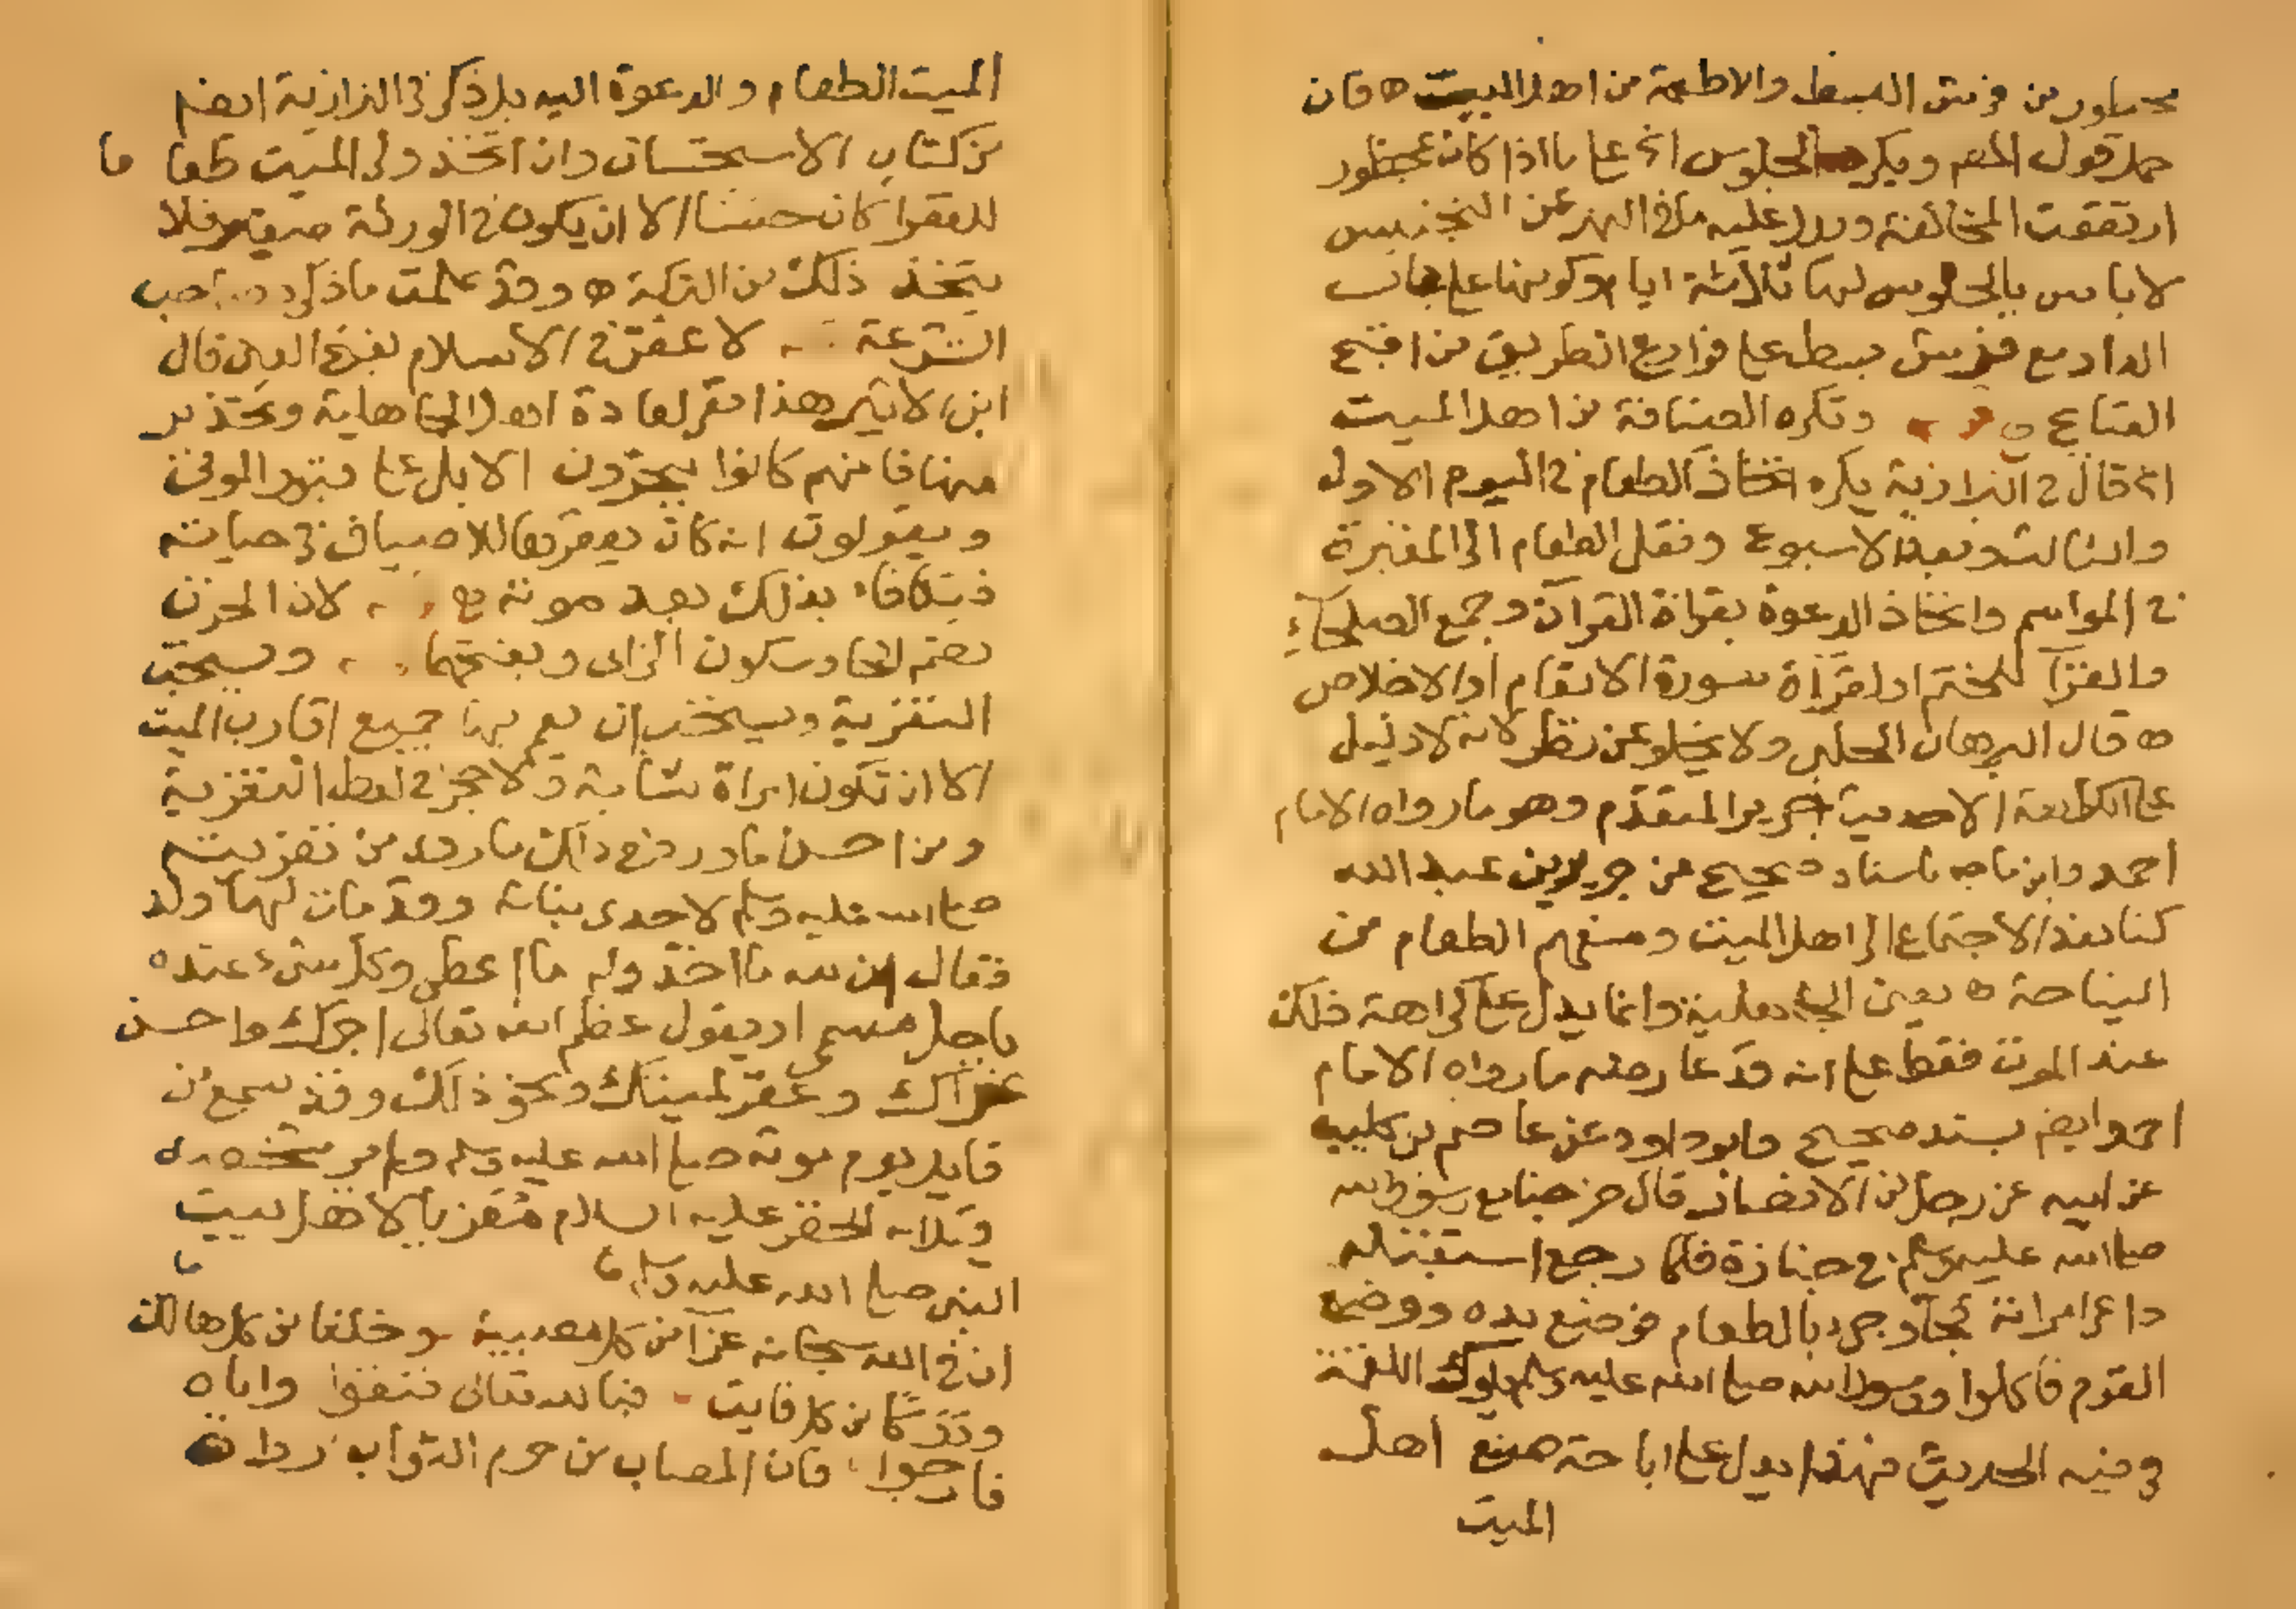 محظور من فرش البسط والاطعمة من اهل البيت ه فان
حمل قول المصـ ويكره الجلوس الخ على ما اذا كان بمحظور
ارتفعت المخالفة ويدل عليه ما في النهر عن التجنيس
لا باس بالجلوس لها ثلاثة ايام وكونها على باب
الدار مع فرش بسط على قوارع الطريق من اقبح
القبائح وتكره الضيافة من اهل الميت
الخ قال في البزازية يكره اتخاذ الطعام في اليوم الاول
والثالث وبعد الاسبوع ونقل الطعام الى المقبرة
في المواسم واتخاذ الدعوة بقراة القرآن وجمع الصلحاء
والقرآ للختم او لقرآة سورة الانعام او الاخلاص
ه قال البرهان الحلبى ولا يخلو عن نظر لانه لا دليل
على الكراهة الا حديث جرير المتقدم وهو ما رواه الامام
احمد وابن ماجه باسناد صحيح عن جرير بن عبد الله
كنا نعد الاجتماع الى اهل الميت وصنعهم الطعام من
النياحة ه يعنى الجاهلية وانما يدل على كراهة ذلك
عند الموت فقط على انه قد عارضه ما رواه الامام
احمد ايضـ بسند صحيح وابو داود عن عاصم بن كليب
عن ابيه عن رجل من الانصار قال خرجنا مع رسول الله
صلى الله عليه وسلم في جنازة فلما رجع استقبله
داعى امراته فجآ وجىء بالطعام فوضع يده ووضع
القوم فاكلوا ورسول الله صلى الله عليه وسلم يلوك اللقمة
في فيه الحديث فهذا يدل على اباحة صنع اهل
الميت
الميت الطعام والدعوة اليه بل ذكر في البزازية ايضـ
من كتاب الاستحسان وان اتخذ ولى الميت طعاما
للفقرا كان حسنا الا ان يكون في الورثة صغير فلا
يتخذ ذلك من التركة ه وقد علمت ما ذكره صاحب
الشرعة لا عقر في الاسلام بفتح العين قال
ابن الاثير هذا نفى لعادة اهل الجاهلية وتحذير
منها فانهم كانوا ينحرون الابل على قبور الموتى
ويقولون انه كان يعقرها للاضياف في حياته
فيكافا بذلك بعد موته لان الحزن
بضم الحا وسكون الزاى وبفتحهما ويستحب
التعزية ويستحب ان يعم بها جميع اقارب الميت
الا ان تكون امراة شابة ولا حجر في لفظ التعزية
ومن احسن ما ورد في ذلك ما روى من تعزيته
صلى الله عليه وسلم لاحدى بناته وقد مات لها ولد
فقال ان لله ما اخذ وله ما اعطى وكل شىء عنده
باجل مسمى او يقول عظم الله تعالى اجرك واحسن
عزآك وغفر لميتك ونحو ذلك وقد سمع من
قايل يوم موته صلى الله عليه وسلم ولم ير شخصه
قيل انه الخضر عليه السلام معزيا لاهل بيت
النبى صلى الله عليه وسلم
ان في الله سبحانه عزآ من كل مصيبة وخلفا من كل هالك
ودركا من كل فايت فبالله تعالى فثقوا واياه
فارجوا فان المصاب من حرم الثواب رواه